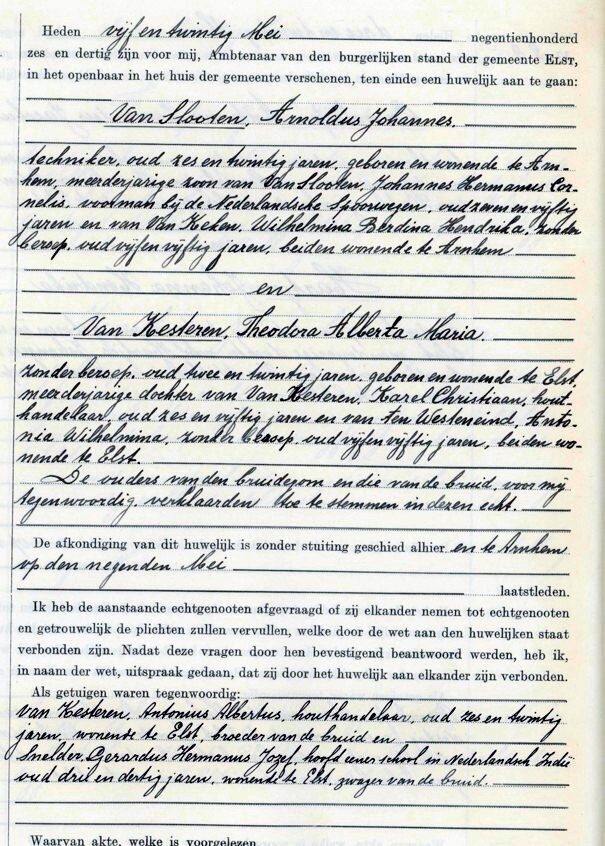 Heden vijf en twintig Mei negentienhonderd
zes en dertig zijn voor mij, Ambtenaar van den burgerlijken stand der gemeente ELST,
in het openbaar in het huis der gemeente verschenen, ten einde een huwelijk aan te gaan:
Van Slooten, Arnoldus Johannes.
techniker, oud zes en twintig jaren, geboren en wonende te Arn-
hem, meerderjarige zoon van Van Slooten, Johannes Hermanus Cor-
nelis, voorman bij de Nederlandsche Spoorwegen, oud zeven en vijftig
jaren en van Van Keken, Wilhelmina Berdina Hendrika, zonder
beroep, oud vijf en vijftig jaren, beiden wonende te Arnhem
en
Van Kesteren, Theodora Alberta Maria.
zonder beroep, oud twee en twintig jaren, geboren en wonende te Elst,
meerderjarige dochter van Van Kesteren, Karel Christiaan, hout-
handelaar, oud zes en vijftig jaren en van ten Westeneind, Anto-
nia Wilhelmina, zonder beroep, oud vijf en vijftig jaren, beiden wo-
nende te Elst.
De ouders van den bruidegom en die van de bruid, voor mij
tegenwoordig, verklaarden toe te stemmen in dezen echt.
De afkondiging van dit huwelijk is zonder stuiting geschied alhier en te Arnhem
op den negenden Mei
laatstleden.
Ik heb de aanstaande echtgenooten afgevraagd of zij elkander nemen tot echtgenooten
en getrouwelijk de plichten zullen vervullen, welke door de wet aan den huwelijken staat
verbonden zijn. Nadat deze vragen door hen bevestigend beantwoord werden, heb ik,
in naam der wet, uitspraak gedaan, dat zij door het huwelijk aan elkander zijn verbonden.
Als getuigen waren tegenwoordig:
van Kesteren, Antonius Albertus, houthandelaar, oud zes en twintig
jaren, wonende te Elst, broeder van de bruid en
Snelder, Gerardus Hermanus Jozef, hoofd eener school in Nederlandsch Indië
oud drie en dertig jaren, wonende te Elst, zwager van de bruid.
Waarvan akte, welke is voorgelezen